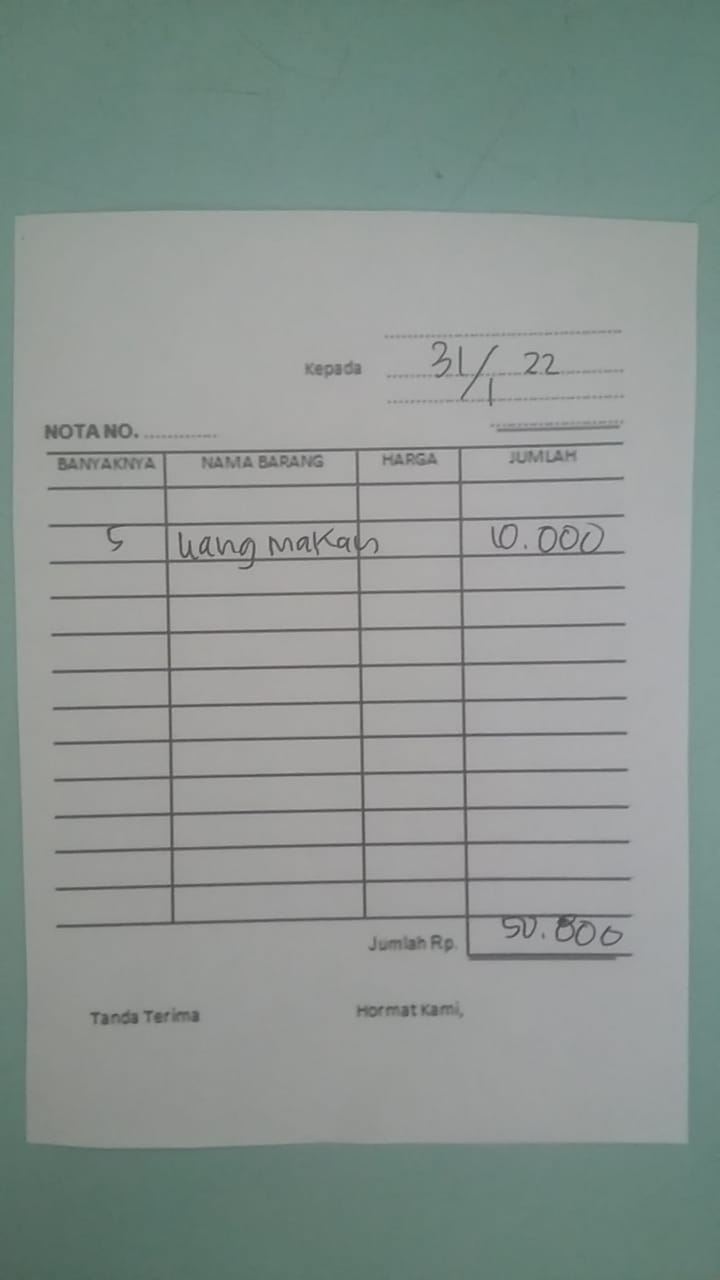 Kepada 31/1 22
NOTA NO. ..............
BANYAKNYA NAMA BARANG HARGA JUMLAH
5 uang makan 10.000
Jumlah Rp. 50.000
Tanda Terima Hormat Kami,